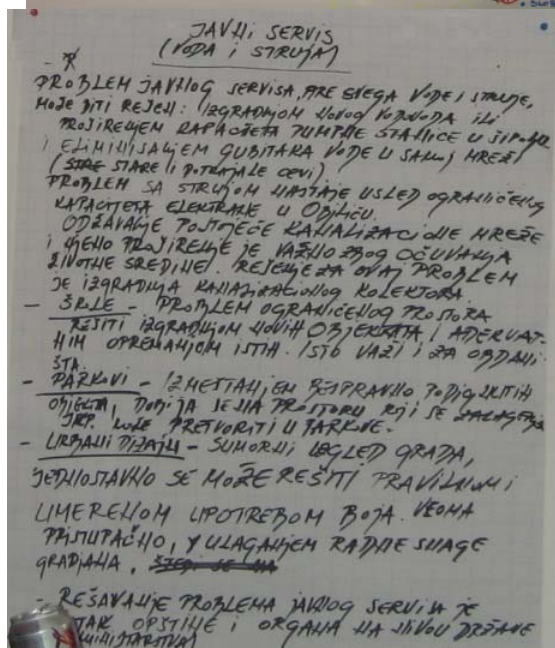 JAVNI SERVIS
(VODA I STRUJA)
PROBLEM JAVNOG SERVISA, PRE SVEGA VODE I STRUJE,
MOŽE BITI REŠEN: IZGRADNJOM NOVOG VODOVODA ILI
PROŠIRENJEM KAPACITETA PUMPNE STANICE U ŠIPOLJE
I ELIMINISANJEM GUBITAKA VODE U SAMOJ MREŽI
(STARE I DOTRAJALE CEVI)
PROBLEM SA STRUJOM NASTAJE USLED OGRANIČENOG
KAPACITETA ELEKTRANE U OBILIĆU.
ODŽAVANJE POSTOJEĆE KANALIZACIONE MREŽE
I NJENO PROŠIRENJE JE VAŽNO ZBOG OČUVANJA
ŽIVOTNE SREDINE. REŠENJE ZA OVAJ PROBLEM
JE IZGRADNJA KANALIZACIONOG KOLEKTORA.
- ŠKOLE - PROBLEM OGRANIČENOG PROSTORA
REŠITI IZGRADNJOM NOVIH OBJEKATA I ADEKVAT-
NIM OPREMANJEM ISTIH. ISTO VAŽI I ZA OBDANI-
ŠTA.
- PARKOVI - IZMEŠTANJEM BESPRAVNO PODIGNUTIH
OBJEKATA, DOBIJA SE NA PROSTORU KOJI SE
MOŽE PRETVORITI U PARKOVE.
- URBANI DIZAJN - SUMORNI IZGLED GRADA,
JEDNOSTAVNO SE MOŽE REŠITI PRAVILNOM I
UMERENOM UPOTREBOM BOJA. VEOMA
PRISTUPAČNO, Y ULAGANJEM RADNE SNAGE
GRAĐANA.
- REŠAVANJE PROBLEMA JAVNOG SERVISA JE
OPŠTINE I ORGANA NA NIVOU DRŽAVE